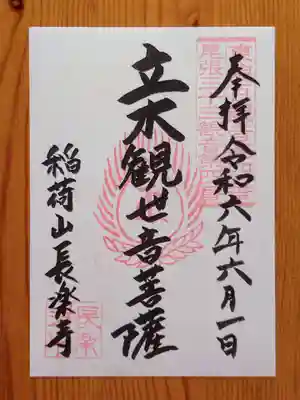 奉拝 令和六年六月一日
立木観世音菩薩
稲荷山長楽寺